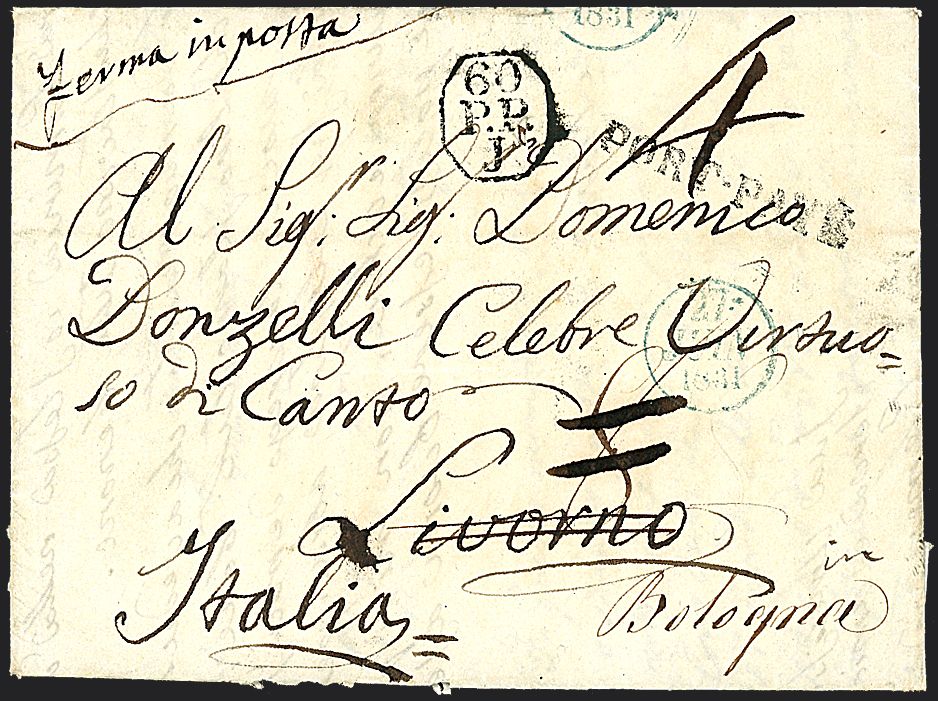 ferma in posta
1831
60
P.P.
J
4
PORT-PAYÉ
Al Sig.r Sig.r Domenico
Donzelli Celebre Virtuo=
so di Canto
27
1831
Livorno
in
Bologna
Italia